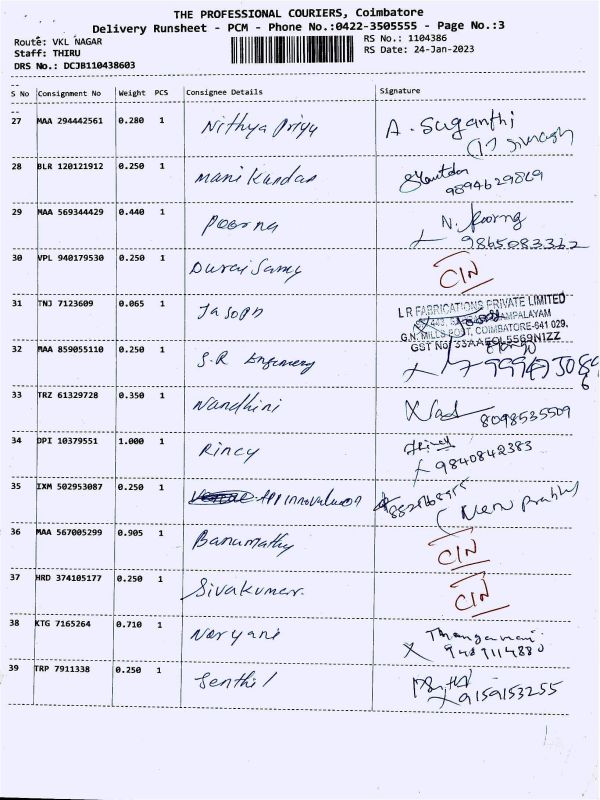 THE PROFESSIONAL COURIERS, Coimbatore
Delivery Runsheet - PCM - Phone No.:0422-3505555 - Page No.:3
Route: VKL NAGAR
RS No.: 1104386
Staff: THIRU
RS Date: 24-Jan-2023
DRS No.: DCJB110438603
S No Consignment No Weight PCS Consignee Details Signature
27 MAA 294442561 0.280 1 Nithya Priya A. Suganthi
28 BLR 120121912 0.250 1 Mani Kandan
9894629869
29 MAA 569344429 0.440 1 Poorna N. Poorna
9865083332
30 VPL 940179530 0.250 1 Durai Samy CIN
31 TNJ 7123609 0.065 1 Jason L R FABRICATIONS PRIVATE LIMITED
G.N. MILLS POST, COIMBATORE-641 029.
GST No. 33AAEOL5569N1ZZ
32 MAA 859055110 0.250 1 S.R Engineering
33 TRZ 61329728 0.350 1 Nandhini 8098535509
34 DPI 10379551 1.000 1 Rincy
9840842383
35 IXM 502953087 0.250 1
36 MAA 567005299 0.905 1 Banumathy CIN
37 HRD 374105177 0.250 1 Sivakumar CIN
38 KTG 7165264 0.710 1 Thangamani
39 TRP 7911338 0.250 1 Senthil 9159153255